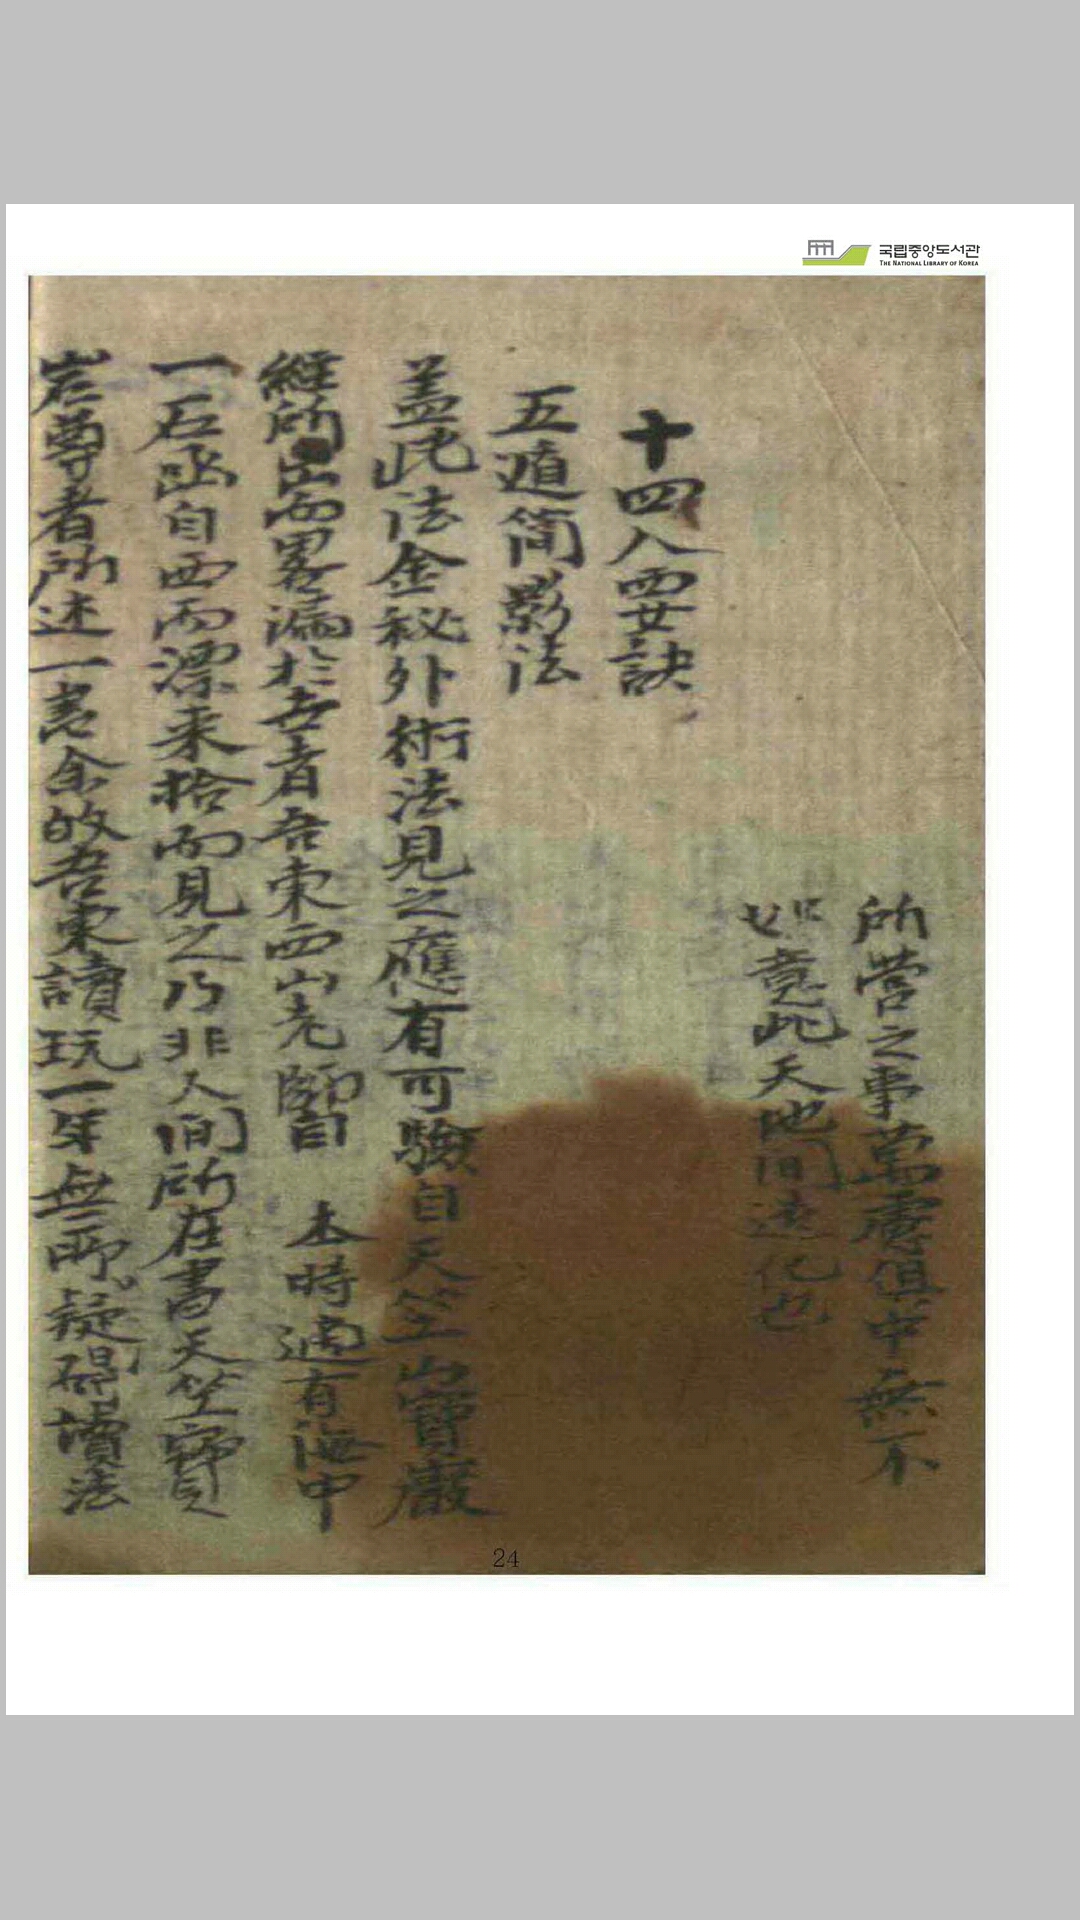 국립중앙도서관
THE NATIONAL LIBRARY OF KOREA
所營之事萬慮俱中無不
如意此天地間造化也
十四八要訣
五遁简影法
盖此法金秘外術法見之應有可驗自天竺山寶巖
經所出而畧漏於吾東西山老 本時適有海中
一石函自西而漂来拾而見之乃非人间所在書天竺寶
岩尊者所述一書余故吾東讀玩一年無所疑碍讀法
24